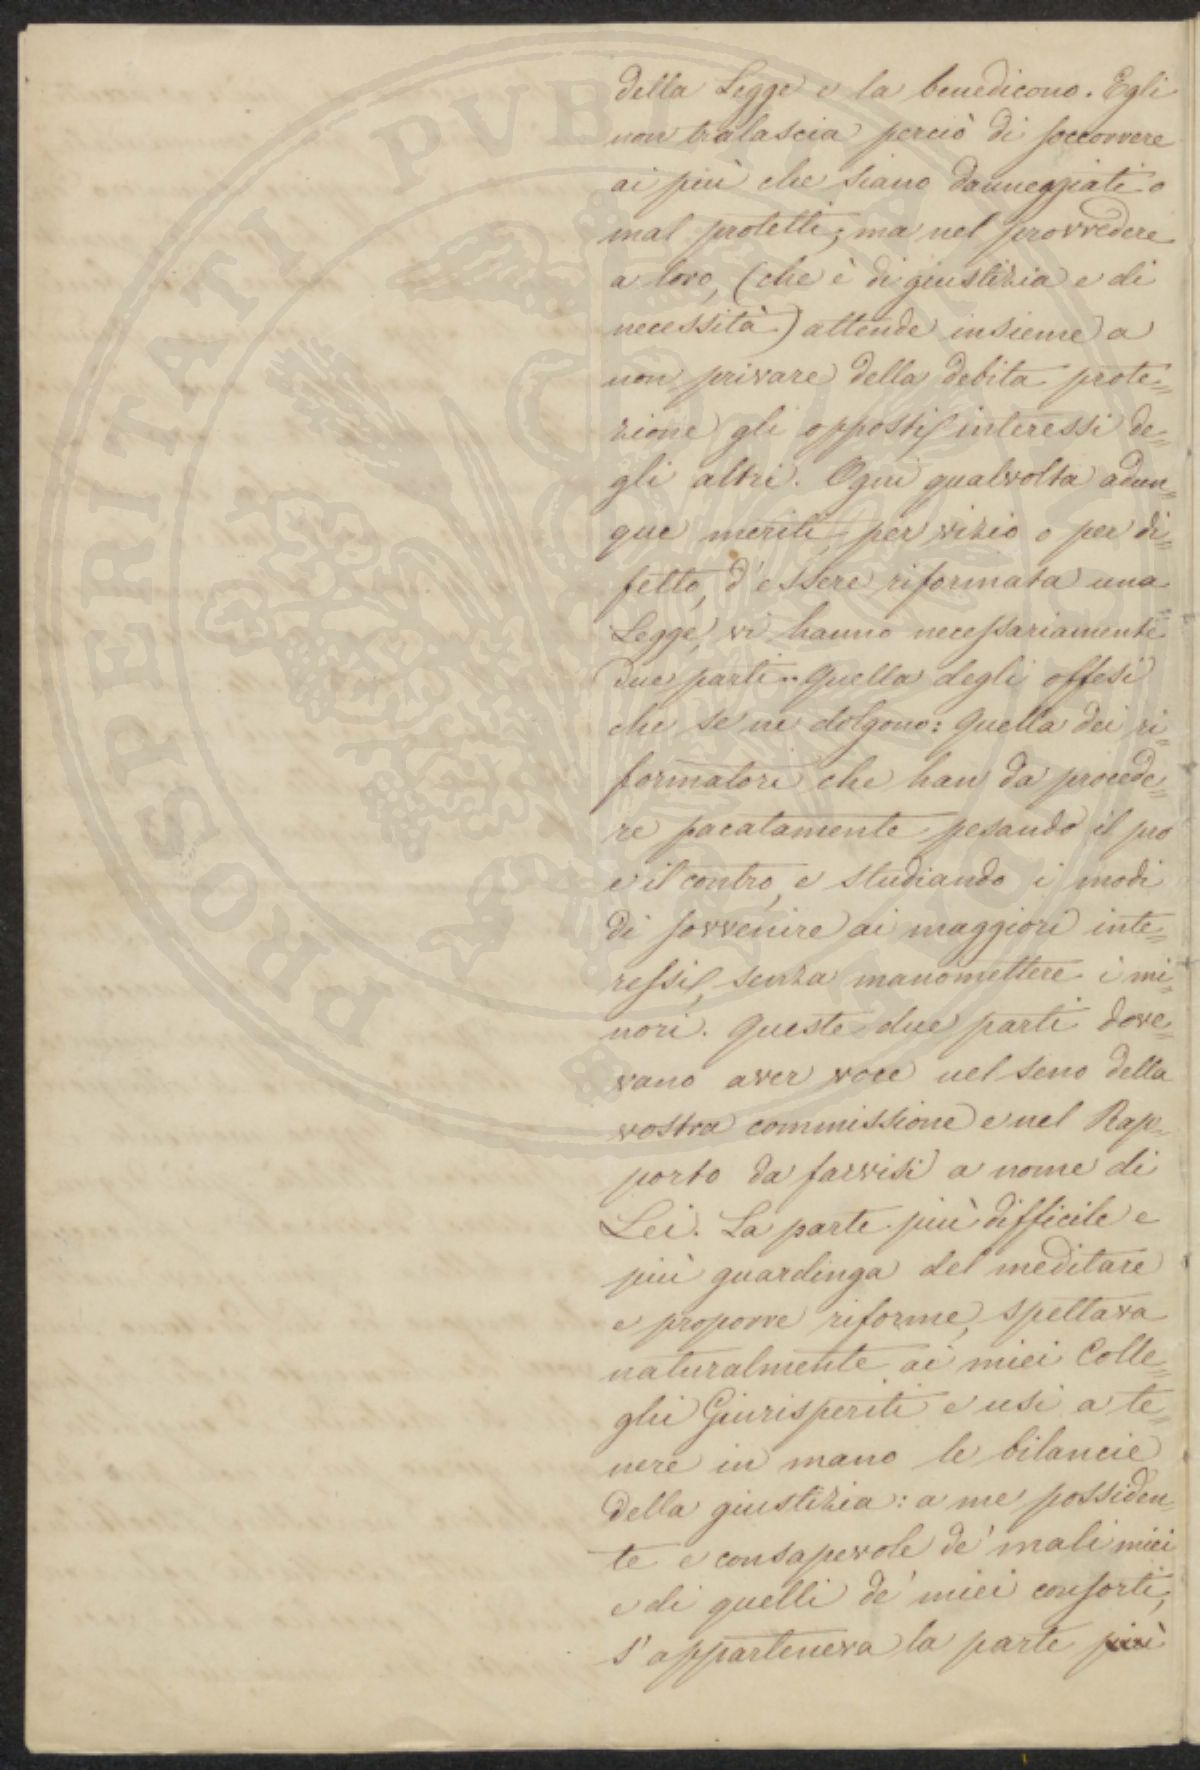 della Legge e la benedicono. Egli
non tralascia perciò di soccorrere
ai più che siano danneggiati o
mal protetti; ma nel provvedere
a loro, (che è di giustizia e di
necessità) attende insieme a
non privare della debita prote=
zione gli opposti interessi de=
gli altri. Ogni qualvolta adun=
que meriti, per vizio o per di=
fetto, d'essere riformata una
Legge, vi hanno necessariamente
due parti. Quella degli offesi
che se ne dolgono: quella dei ri=
formatori che han da procede=
re pacatamente pesando il pro
e il contro, e studiando i modi
di sovvenire ai maggiori inte=
ressi, senza manomettere i mi=
nori. Queste due parti dove=
vano aver voce nel seno della
vostra commissione e nel Rap=
porto da farvisi a nome di
Lei. La parte più difficile e
più guardinga del meditare
e proporre riforme, spettava
naturalmente ai miei Colle=
ghi Giurisperiti e usi a te=
nere in mano le bilancie
della giustizia: a me possiden=
te e consapevole de' mali miei
e di quelli de' miei consorti,
s'apparteneva la parte più
PROSPERITATI PVBLICAE